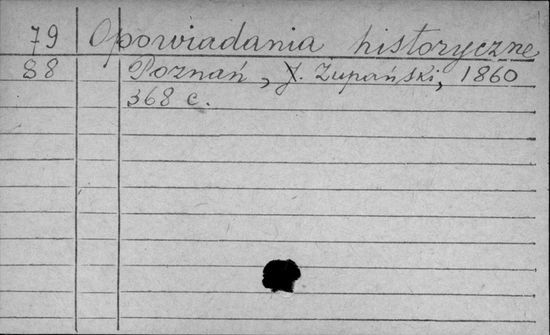 79 Opowiadania historyczne
88 Poznań, J. Żupański, 1860
368 c.